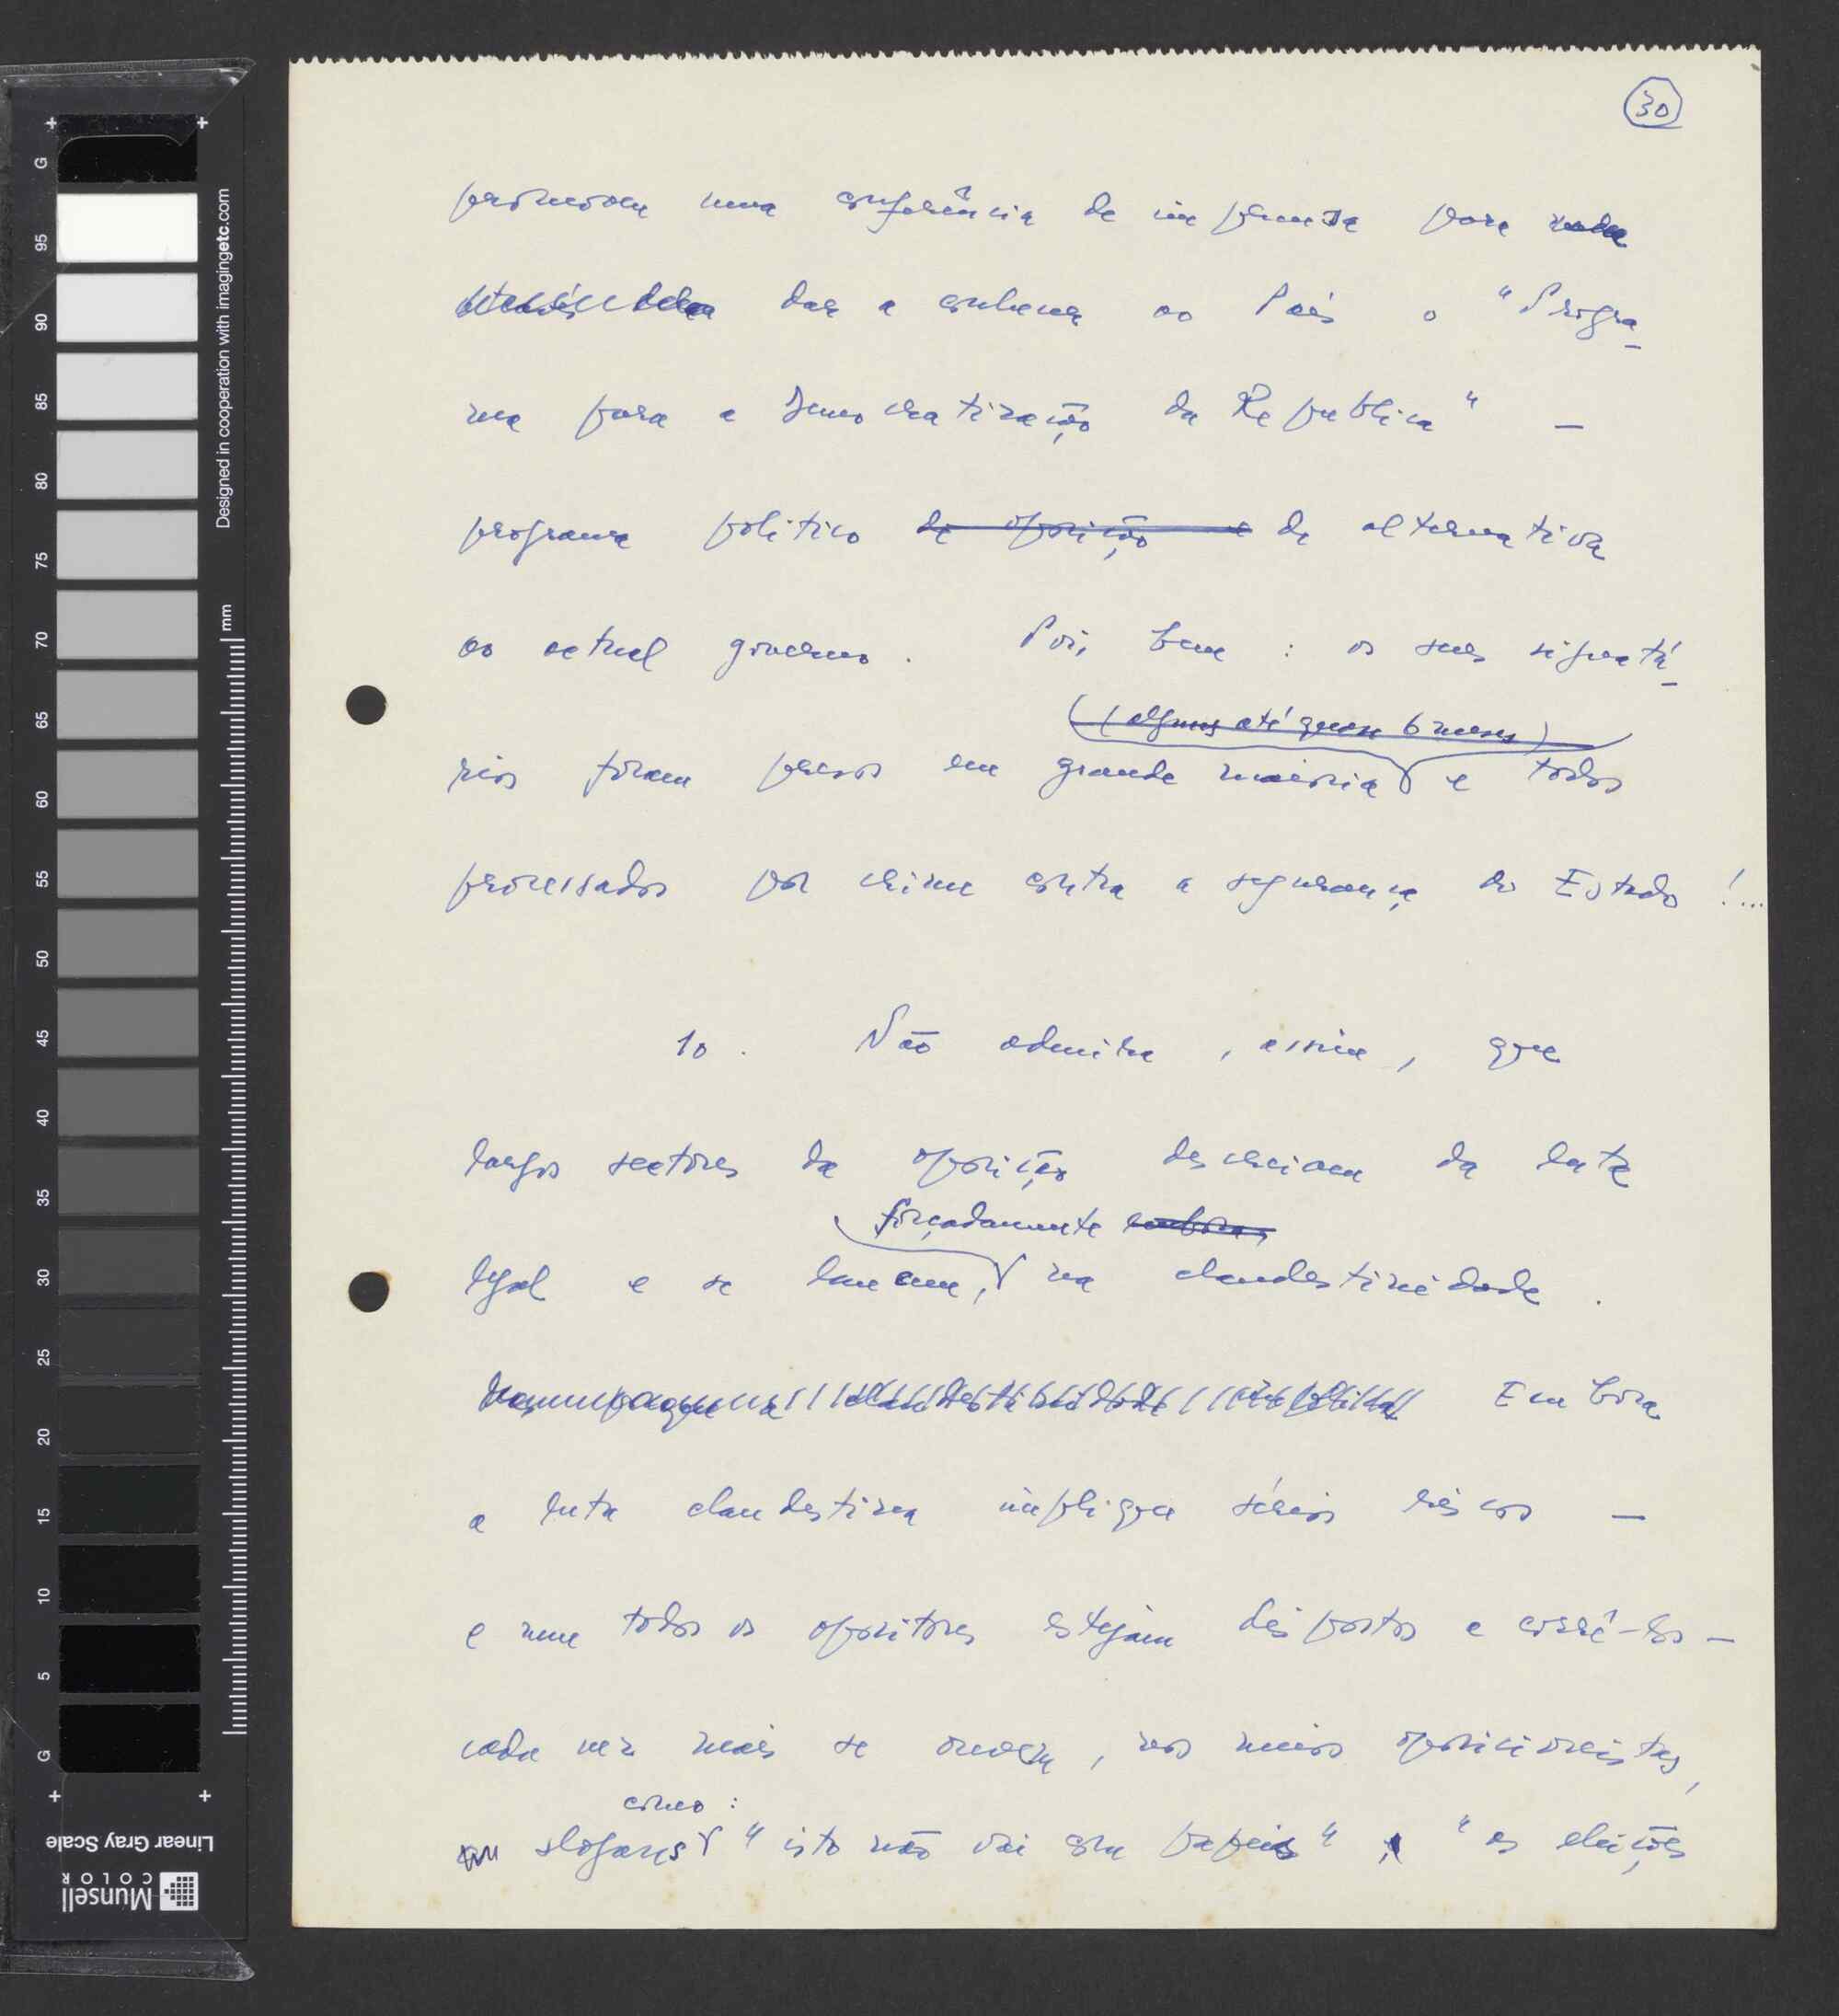 30
promovem uma conferência de imprensa para
dar a conhecer ao País o "Progra-
ma para a Democratização da República" —
programa político de oposição e de alternativa
ao actual governo. Pois bem: os seus signatá-
(algums até quase 6 meses)
rios foram presos em grande maioria e todos
processados por crime contra a segurança do Estado!...
10. Não admira, assim, que
largos sectores da oposição descreiam da luta
forçadamente embora,
legal e se lancem, na clandestinidade.
Embora
a luta clandestina implique sérios riscos —
e nem todos os opositores estejam dispostos a corrê-los —
cada vez mais se ouvem, nos meios oposicionistas,
como:
slogans "isto não vai com papeis", "as eleições
G
95
90
85
80
75
70
65
60
55
50
45
40
35
30
25
20
15
10
5
G
mm
Designed in cooperation with imagingetc.com
Linear Gray Scale
Munsell
COLOR